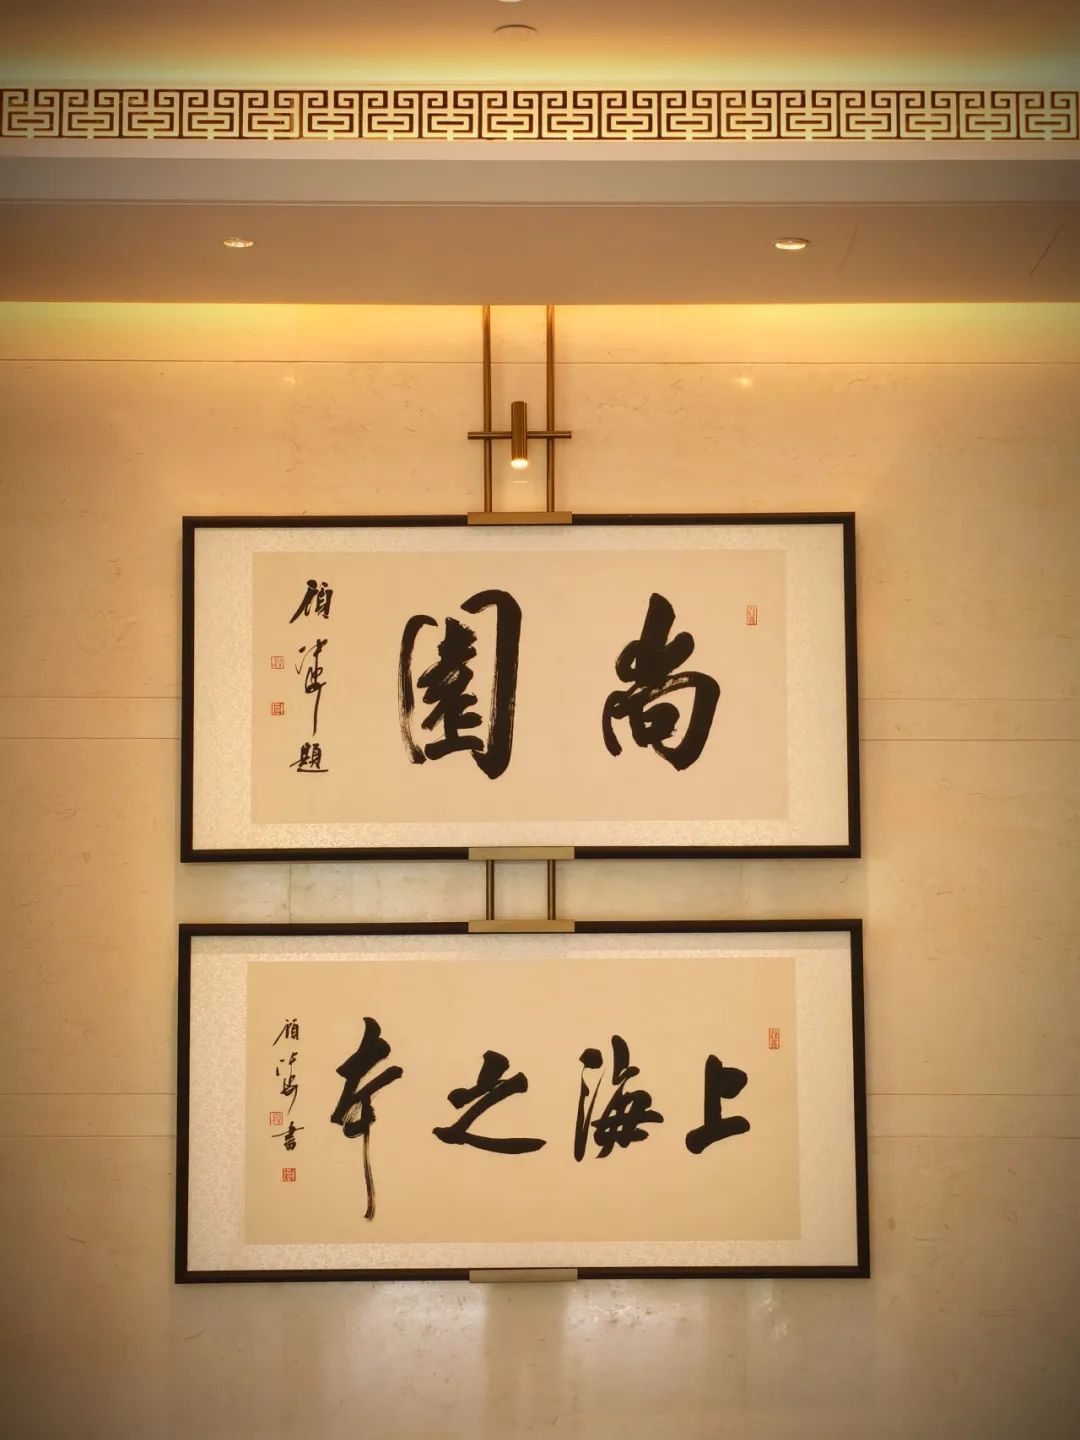 尚園
顧 題
上海之本
顧 書